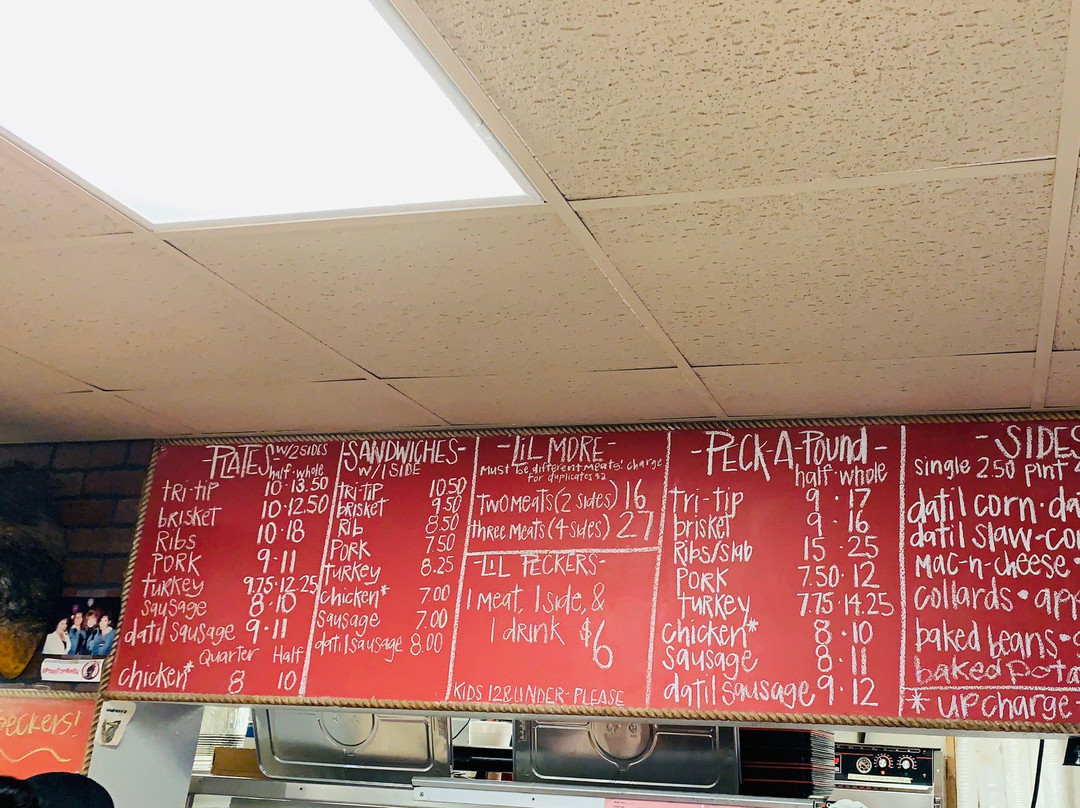 PLATES W/2 SIDES
half·whole
TRI-TIP 10·13.50
BRISKET 10·12.50
RIBS 10·18
PORK 9·11
TURKEY 9.75·12.25
SAUSAGE 8·10
datil SAUSAGE 9·11
Quarter Half
chicken* 8 10
SANDWICHES-
W/1 SIDE
TRI-TIP 10.50
BRISKET 9.50
RIB 8.50
PORK 7.50
TURKEY 8.25
chicken* 7.00
SAUSAGE 7.00
datil sausage 8.00
-LIL MORE-
Must be different meats! charge
for duplicates $2
TWO MEATS (2 sides) 16
three MEATS (4 sides) 27
-LIL PECKERS-
1 meat, 1 side, &
1 drink $6
KIDS 12 & UNDER-PLEASE
-PECK-A-Pound-
half·whole
tri-tip 9·17
brisket 9·16
Ribs/slab 15·25
PORK 7.50·12
TURKEY 7.75·14.25
chicken* 8·10
SAUSAGE 8·11
datil SAUSAGE 9·12
-SIDES
single 2.50 pint
datil corn·da
datil slaw-co
mac-n-cheese·
collards·app
baked beans·
baked pota
* UPCHARGE
eckers!